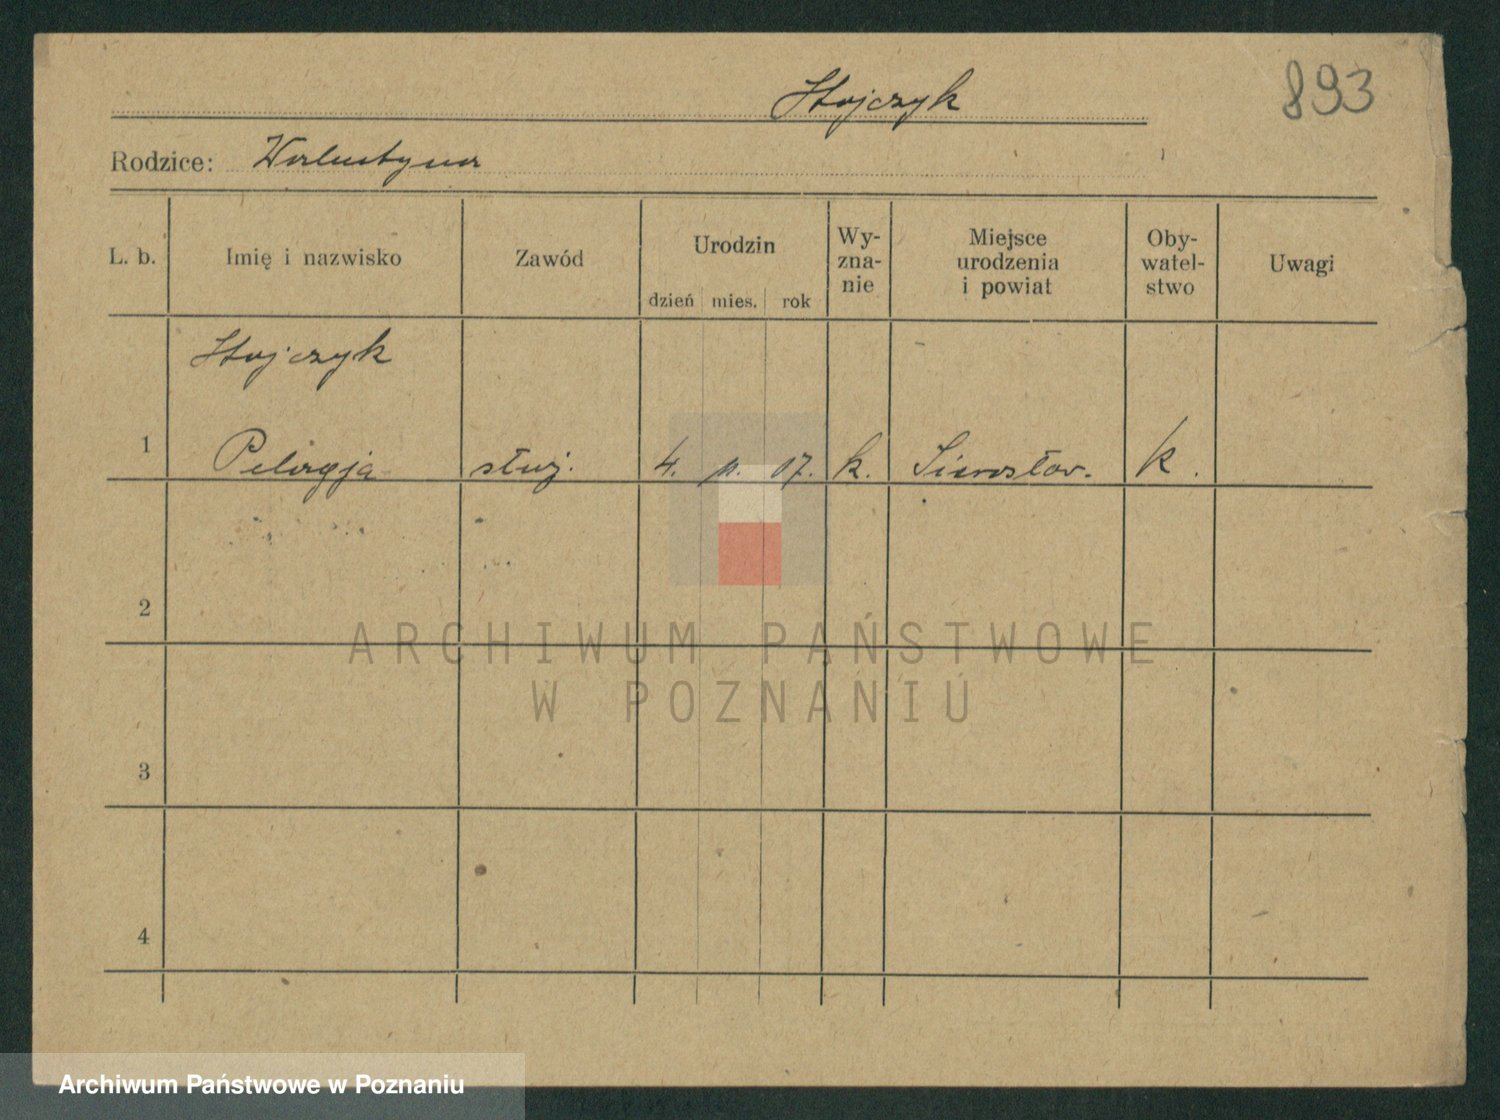 893
Stojczyk
Rodzice: Walentyna
L. b. Imię i nazwisko Zawód Urodzin dzień mies. rok Wy-zna-nie Miejsce urodzenia i powiat Oby-watel-stwo Uwagi
Stojczyk
1 Pelagja służ. 4. 07. k. Sierosław.
2
3
4
ARCHIWUM PAŃSTWOWE
W POZNANIU
Archiwum Państwowe w Poznaniu